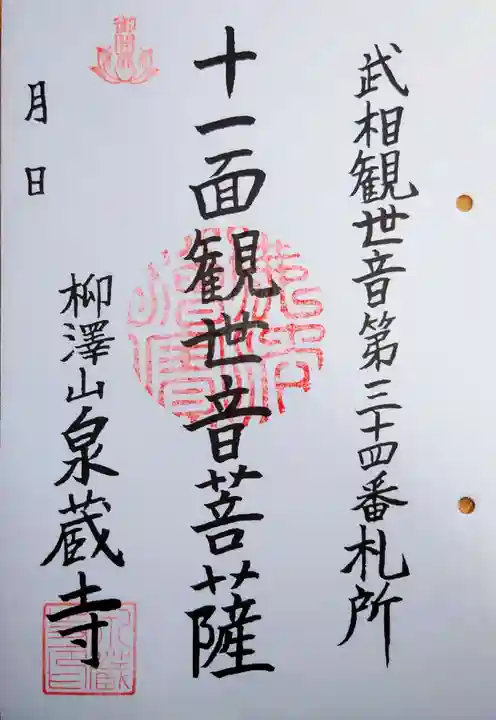 武相観世音第三十四番札所
十一面観世音菩薩
柳澤山泉蔵寺
月 日